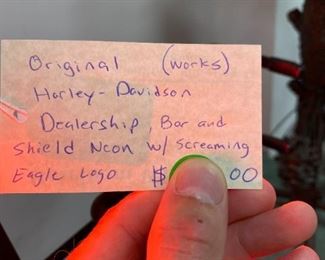 Original (works)
Harley-Davidson
Dealership, Bar and
Shield Neon w/ Screaming
Eagle Logo $ 00